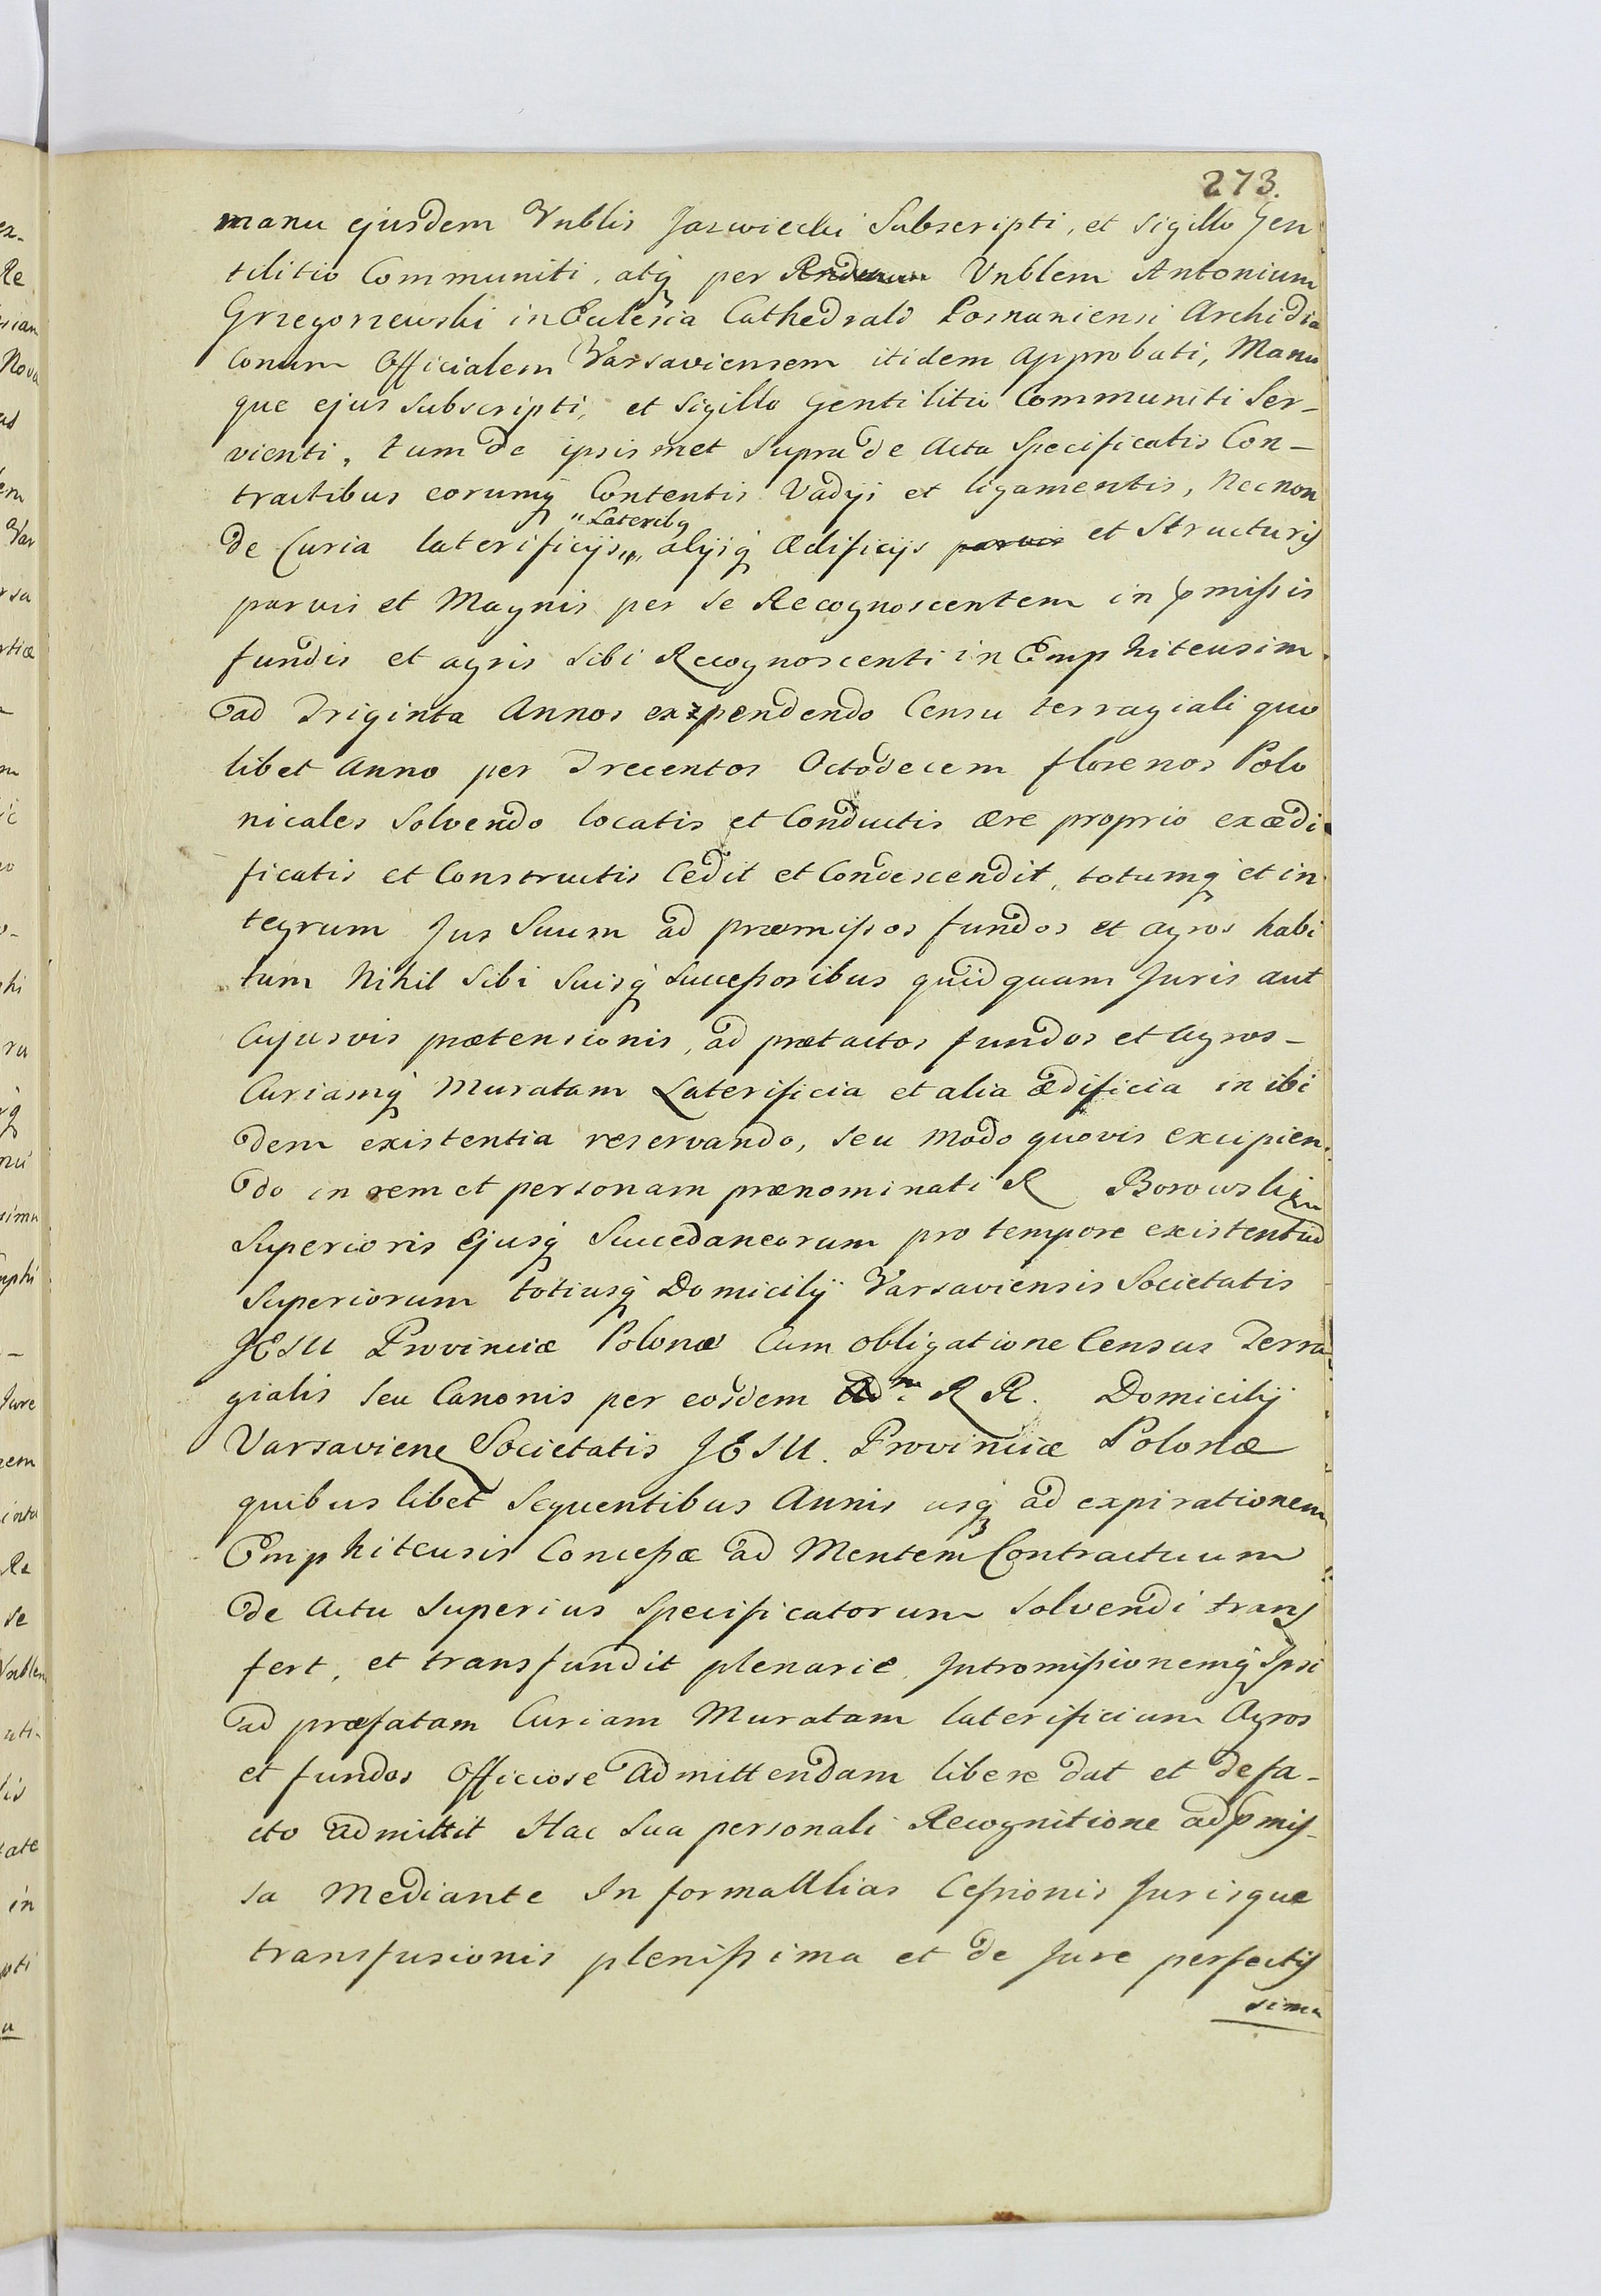 273.
manu ejusdem Vnblis Jaswiecki Subscripti, et Sigillo Gen
tilitio Communiti, atq per Vnblem Antonium
Grzegorzewski in Eccleśia Cathedrali Posnaniensi Archidia
Conum Officialem Varsaviensem itidem Approbati, Manu
que ejus subscripti, et Sigillo Gentilitio Communiti Ser-
vienti, tum de ipsismet Supra de Actu Specificatis Con-
tractibus eorumq Contentis Vadÿs et ligamentis, Necnon
"Lateribq
de Curia laterificijs,,,, alÿsq Ædificijs parvis et Structuris
parvis et Magnis per se Recognoscentem in pmissis
fundis et agris Sibi Recognoscenti in Emphiteusim
ad Triginta Annos expendendo Censu terragiali quo
libet Anno per Trecentos Octodecem florenos Polo
nicales Solvendo locatis et Conductis ære proprio exædi
ficatis et Constructis Cedit et Condescendit, totumq et in
tegrum Jus Suum ad præmissos fundos et agros habi
tum Nihil Sibi Suisq Successoribus quidquam Juris aut
Cujusvis prætensionis, ad prætactos fundos et Agros -
Curiamq Muratam Laterificia et alia ædificia in ibi
dem existentia reservando, seu Modo quovis excipien
do in rem et personam prænominati R Borowski
Superioris Ejusq Succedaneorum pro tempore existentium
Superiorum totiusq Domicilÿ Varsaviensis Societatis
JESU Provinciæ Polonæ Cum obligatione Census Terra
gialis Seu Canonis per eosdem Ad.m R R. Domicilij
Varsaviens Societatis JESU. Provinciæ Polonæ
quibus libet Sequentibus Annis usq ad expirationem
Emphiteusis Concessæ ad Mentem Contractuum
de Actu Superius Specificatorum Solvendi trans
fert, et transfundit plenarie, Intromissionemq Ipsi
ad præfatam Curiam Muratam laterificium Agros
et fundos Officiose Admittendam libere dat et defa-
cto admittit Hac Sua personali Recognitione ad pmis-
sa Mediante In forma Alias Cessionis Jurisque
transfusionis plenissima et de Jure perfectis
sima